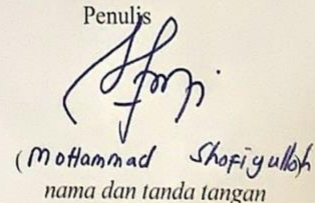 Penulis
(Mohammad Shofiyulloh
nama dan tanda tangan